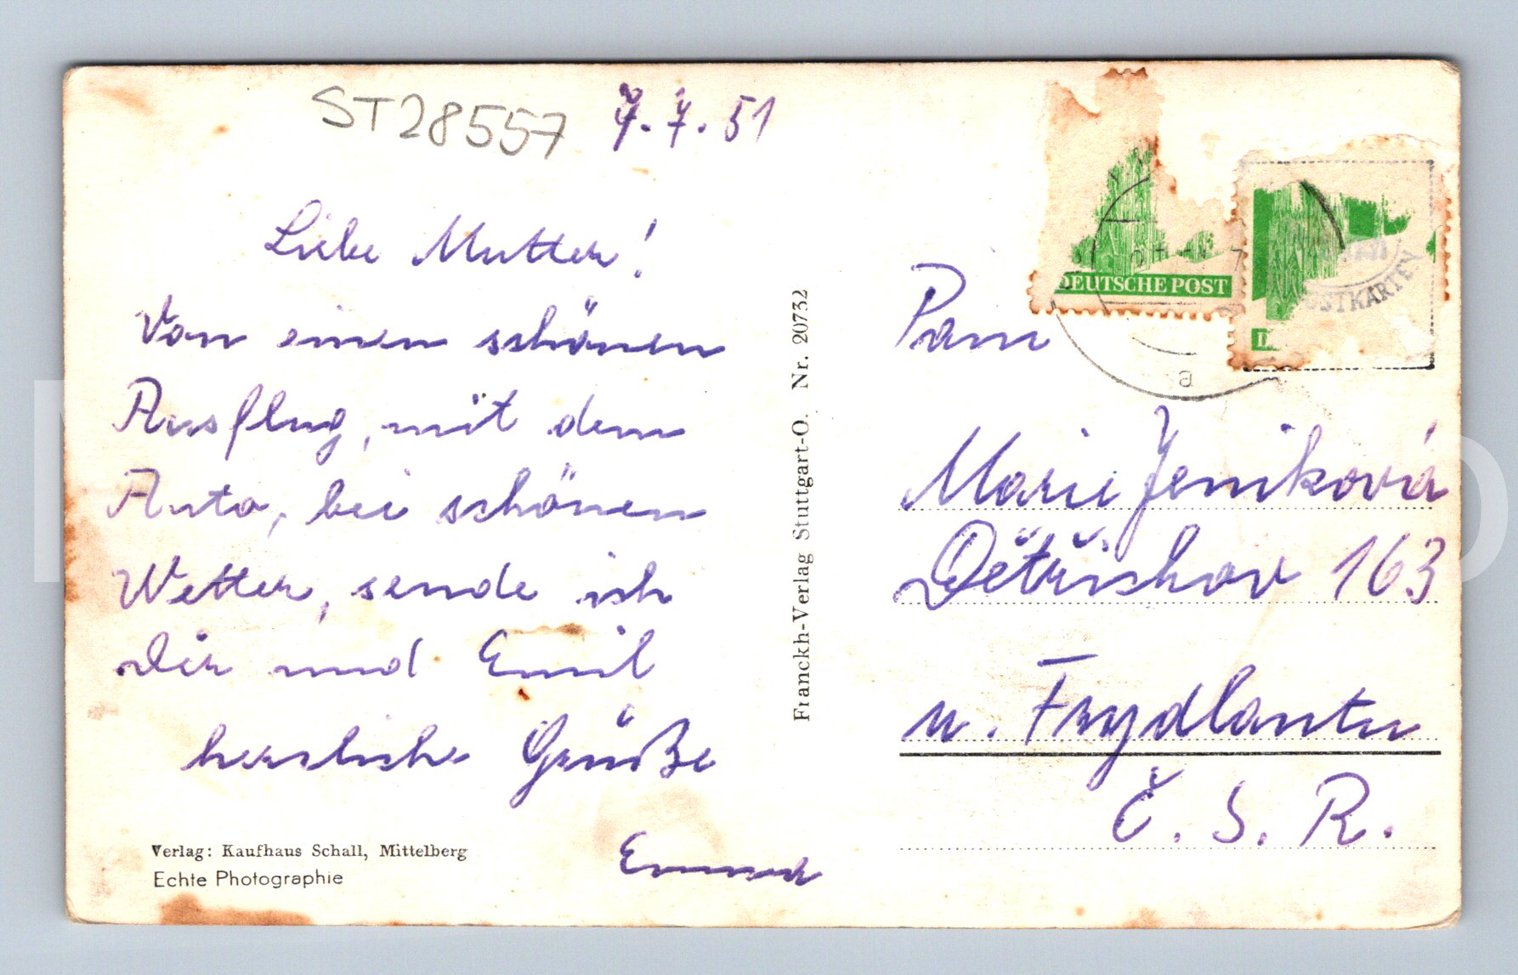 ST28557
7.7.51
Liebe Mutter!
Von einen schönen
Ausflug, mit dem
Auto, bei schönen
Wetter, sende ich
Dir und Emil
herzliche Grüße
Emma
Verlag: Kaufhaus Schall, Mittelberg
Echte Photographie
Franckh-Verlag Stuttgart-O. Nr. 20732
DEUTSCHE POST
a
Pani
Marie Jeniková
Dětřichov 163
u. Frydlantu
Č. S. R.